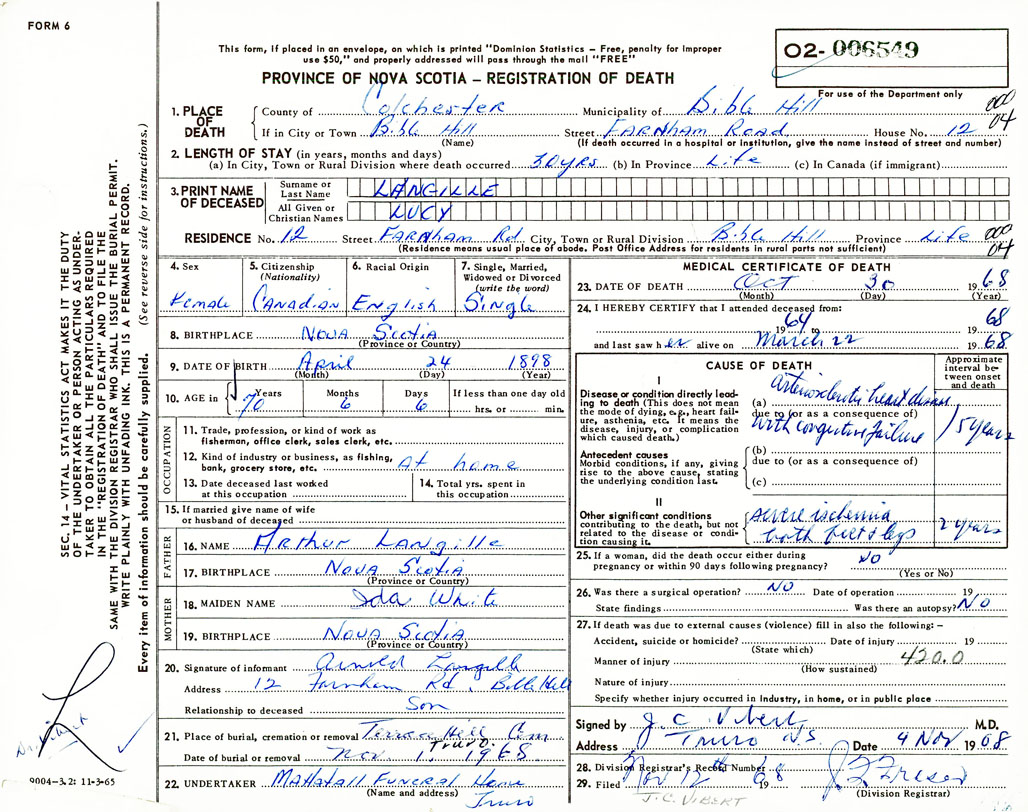 FORM 6
This form, if placed in an envelope, on which is printed "Dominion Statistics – Free, penalty for improper
use $50," and properly addressed will pass through the mail "FREE"
O2- 006549
For use of the Department only
PROVINCE OF NOVA SCOTIA – REGISTRATION OF DEATH
SEC. 14 – VITAL STATISTICS ACT MAKES IT THE DUTY
OF THE UNDERTAKER OR PERSON ACTING AS UNDER-
TAKER TO OBTAIN ALL THE PARTICULARS REQUIRED
IN THE "REGISTRATION OF DEATH" AND TO FILE THE
SAME WITH THE DIVISION REGISTRAR WHO SHALL ISSUE THE BURIAL PERMIT.
WRITE PLAINLY WITH UNFADING INK. THIS IS A PERMANENT RECORD.
Every item of information should be carefully supplied. (See reverse side for instructions.)
1. PLACE OF DEATH County of Colchester Municipality of Bible Hill 000
If in City or Town Bible Hill Street FARNham Road House No. 12 04
(Name) (If death occurred in a hospital or institution, give the name instead of street and number)
2. LENGTH OF STAY (in years, months and days)
(a) In City, Town or Rural Division where death occurred 30 yrs (b) In Province Life (c) In Canada (if immigrant)
3. PRINT NAME OF DECEASED Surname or Last Name LANGILLE
All Given or Christian Names LUCY
RESIDENCE No. 12 Street FARNham Rd City, Town or Rural Division Bible Hill Province Life 000
(Residence means usual place of abode. Post Office Address for residents in rural parts not sufficient) 04
4. Sex Female
5. Citizenship (Nationality) Canadian
6. Racial Origin English
7. Single, Married, Widowed or Divorced (write the word) Single
8. BIRTHPLACE Nova Scotia
(Province or Country)
9. DATE OF BIRTH April 24 1898
(Month) (Day) (Year)
10. AGE in Years 70 Months 6 Days 6 If less than one day old hrs. or min.
OCCUPATION
11. Trade, profession, or kind of work as
fisherman, office clerk, sales clerk, etc.
12. Kind of industry or business, as fishing,
bank, grocery store, etc. At home
13. Date deceased last worked
at this occupation
14. Total yrs. spent in
this occupation
15. If married give name of wife
or husband of deceased
FATHER
16. NAME Arthur Langille
17. BIRTHPLACE Nova Scotia
(Province or Country)
MOTHER
18. MAIDEN NAME Ida White
19. BIRTHPLACE Nova Scotia
(Province or Country)
20. Signature of informant Arnold Langille
Address 12 Farnham Rd, Bible Hill
Relationship to deceased Son
21. Place of burial, cremation or removal Terrace Hill Cem
Truro
Date of burial or removal Nov. 1, 1968
22. UNDERTAKER Mattatall Funeral Home
(Name and address) Truro
MEDICAL CERTIFICATE OF DEATH
23. DATE OF DEATH Oct 30 1968
(Month) (Day) (Year)
24. I HEREBY CERTIFY that I attended deceased from:
1964 to 1968
and last saw her alive on March 22 1968
CAUSE OF DEATH
Approximate interval between onset and death
I
Disease or condition directly lead-
ing to death (This does not mean
the mode of dying, e.g., heart fail-
ure, asthenia, etc. It means the
disease, injury, or complication
which caused death.)
(a) arteriosclerotic heart disease
due to (or as a consequence of)
with congestive failure
15 years
Antecedent causes
Morbid conditions, if any, giving
rise to the above cause, stating
the underlying condition last.
(b)
due to (or as a consequence of)
(c)
II
Other significant conditions
contributing to the death, but not
related to the disease or condi-
tion causing it.
severe ischemia
both feet & legs
2 years
25. If a woman, did the death occur either during
pregnancy or within 90 days following pregnancy? NO
(Yes or No)
26. Was there a surgical operation? NO Date of operation 19
State findings Was there an autopsy? NO
27. If death was due to external causes (violence) fill in also the following: –
Accident, suicide or homicide? Date of injury 19
(State which)
Manner of injury 420.0
(How sustained)
Nature of injury
Specify whether injury occurred in Industry, in home, or in public place
Signed by J. C. Vibert M.D.
Address Truro N.S. Date 4 Nov 1968
28. Division Registrar's Record Number
29. Filed Nov 12th 68 19
(Division Registrar)
J.C. VIBERT
Dr. Vibert
9004-3.2: 11-3-65